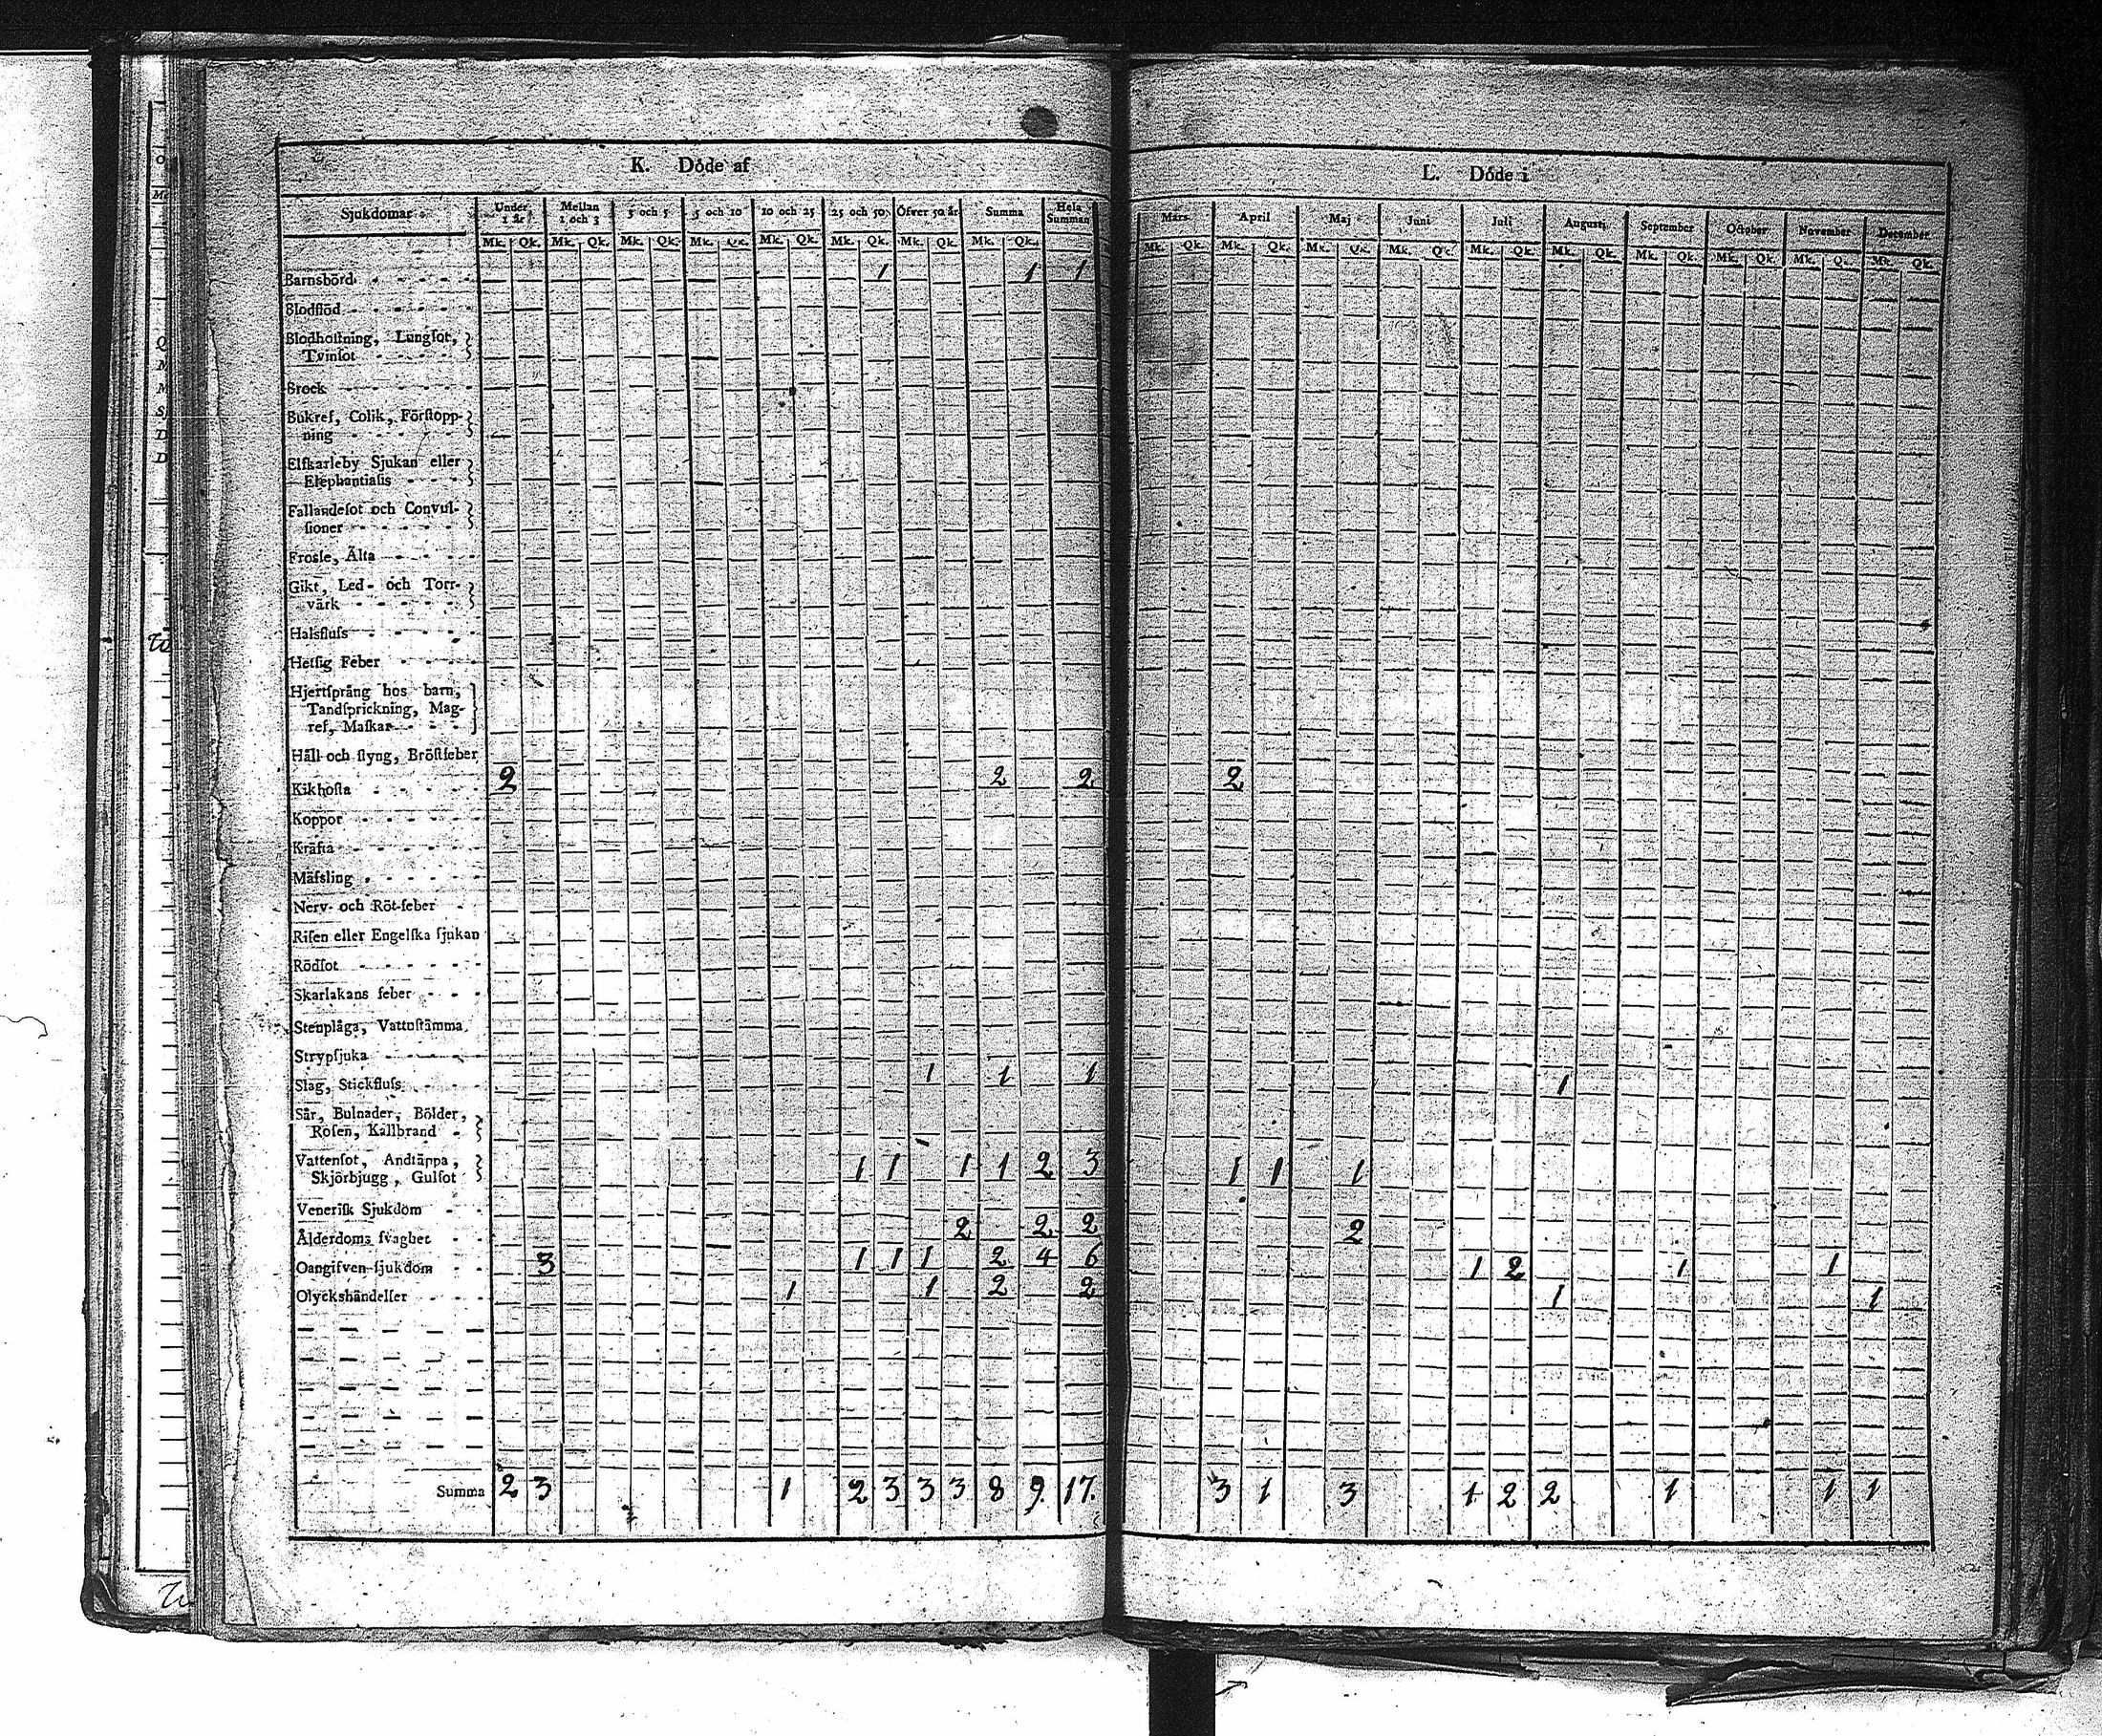 K. Döde af
Sjukdomar Under 1 år Mellan 1 och 3 3 och 5 5 och 10 10 och 25 25 och 50 Öfver 50 år Summa Hela Summan
Mk. Qk. Mk. Qk. Mk. Qk. Mk. Qk. Mk. Qk. Mk. Qk. Mk. Qk. Mk. Qk.
Barnsbörd 1 1 1
Blodflöd
Blodhoſtning, Lungſot,
Tvinſot
Brock
Bukref, Colik, Förſtopp-
ning
Elfkarleby Sjukan eller
Elephantiaſis
Fallandeſot och Convul-
ſioner
Frosſe, Älta
Gikt, Led- och Torr-
värk
Halsfluſs
Hetſig Feber
Hjertſprång hos barn,
Tandſprickning, Mag-
ref, Maſkar
Håll och ſtyng, Bröſtfeber
Kikhoſta 2 2 2
Koppor
Kräfta
Mäſsling
Nerv- och Röt-feber
Riſen eller Engelſka ſjukan
Rödſot
Skarlakans feber
Stenplåga, Vattuſtämma
Strypſjuka
Slag, Stickfluſs 1 1 1
Sår, Bulnader, Bölder,
Roſen, Kallbrand
Vattenſot, Andtäppa,
Skjörbjugg, Gulſot 1 1 1 1 2 3
Veneriſk Sjukdom
Ålderdoms ſvaghet 2 2 2
Oangifven ſjukdom 3 1 1 1 2 4 6
Olyckshändelſer 1 1 2 2
Summa 2 3 1 2 3 3 3 8 9. 17.
L. Döde i
Mars April Maj Juni Juli Auguſti September October November December
Mk. Qk. Mk. Qk. Mk. Qk. Mk. Qk. Mk. Qk. Mk. Qk. Mk. Qk. Mk. Qk. Mk. Q. Mk. Qk.
2
1
1 1 1
2
1 2 1 1
1 1
3 1 3 1 2 2 1 1 1